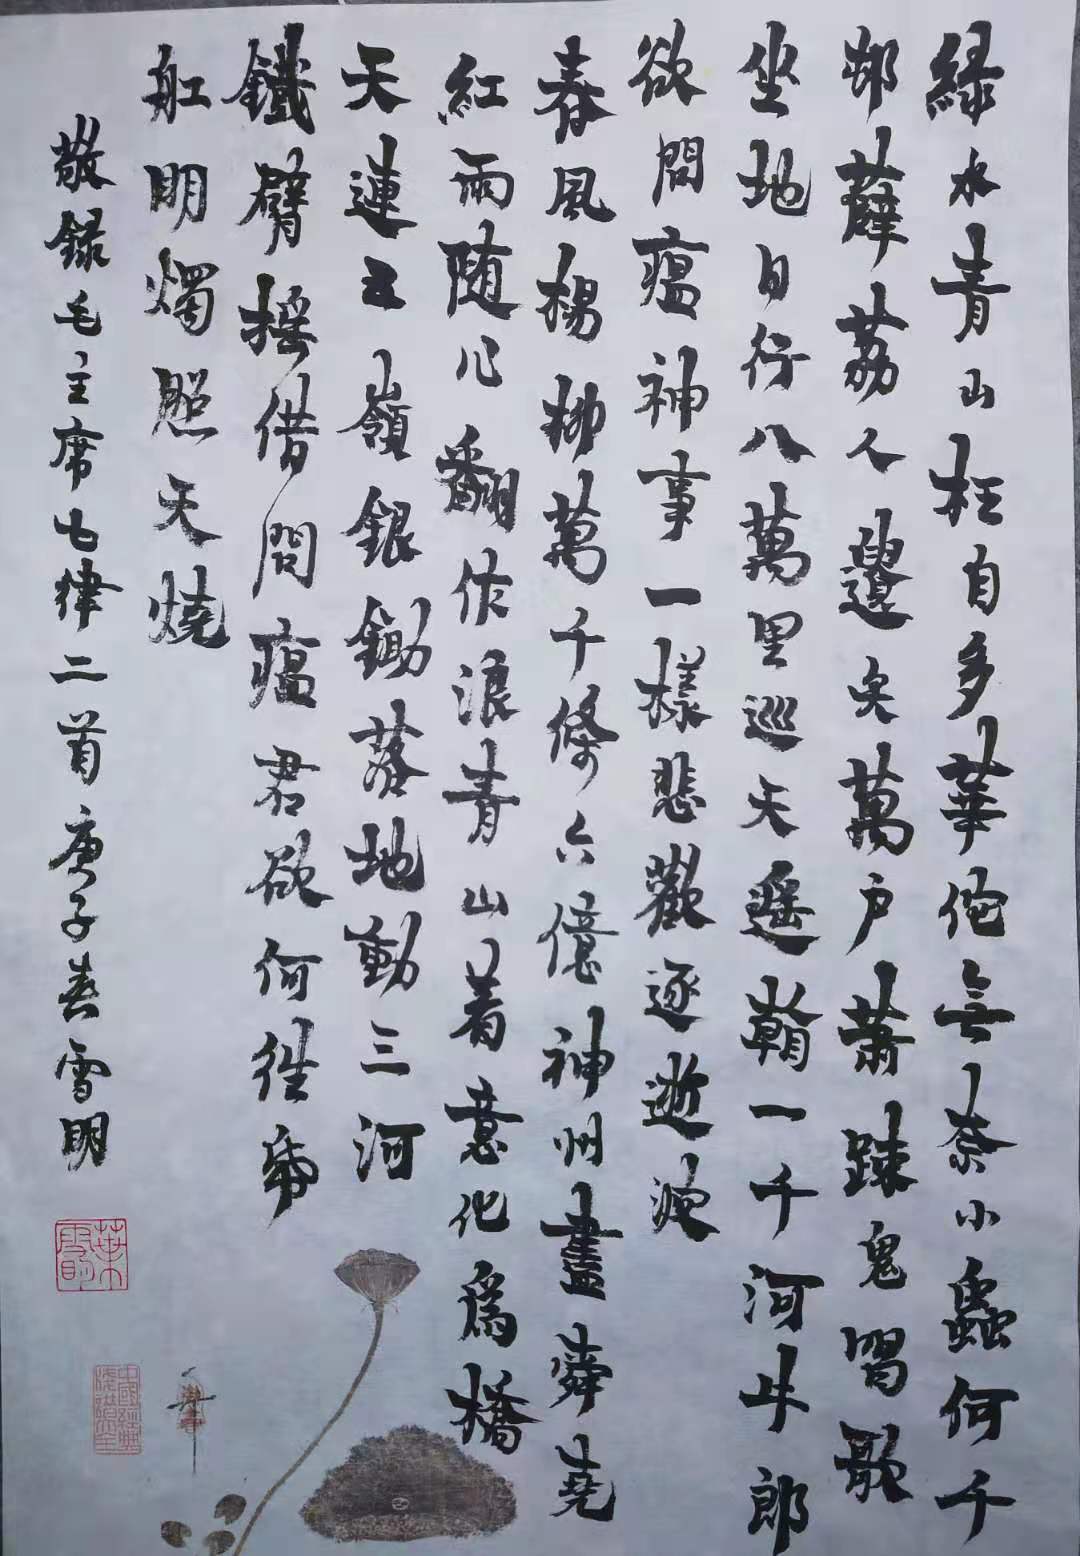 緑水青山枉自多華佗無奈小蟲何千
邨薜荔人遺矢萬户蕭踈鬼唱歌
坐地日行八萬里巡天遥看一千河牛郎
欲問瘟神事一樣悲歡逐逝波
春風楊柳萬千條六億神州盡舜堯
紅雨随心翻作浪青山着意化爲橋
天連五嶺銀鋤落地動三河
鐵臂摇借問瘟君欲何往帋
舡明燭照天燒
敬録毛主席七律二首庚子春雪明
葉雪明